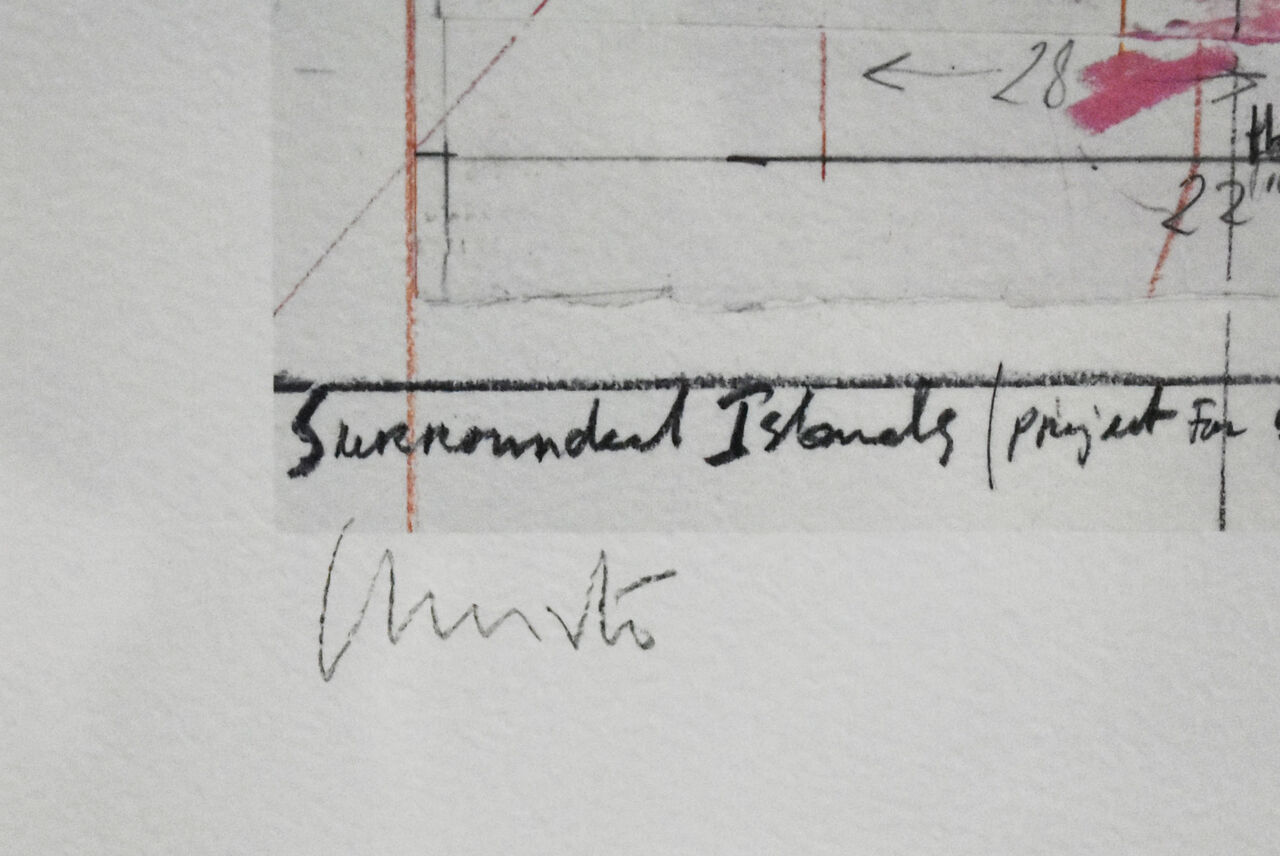 28
22
Surrounded Islands (project For
Christo